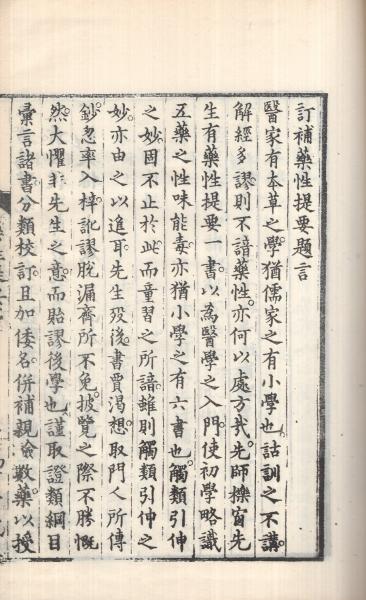 訂補藥性提要題言
醫家有本草之學猶儒家之有小學也詁訓之不講
解經多謬則不諳藥性亦何以處方哉先師櫟窗先
生有藥性提要一書以為醫學之入門使初學略識
五藥之性味能毒亦猶小學之有六書也觸類引伸
之妙固不止於此而童習之所諳雖則觸類引伸之
妙亦由之以進耳先生歿後書賈渴想取門人所傳
鈔忽率入梓訛謬脫漏齊所不免披覽之際不勝慨
然大懼非先生之意而貽謬後學也謹取證類綱目
彙言諸書分類校訂且加倭名併補親僉數藥以授